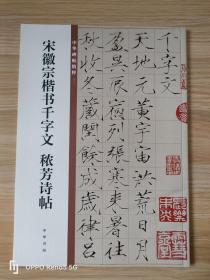 中华碑帖精粹
宋徽宗楷书千字文 秾芳诗帖
中华书局
千字文
天地元黃宇宙洪荒日月
盈昃辰宿列張寒來暑往
秋收冬藏閏餘成歲律呂
OPPO Reno5 5G